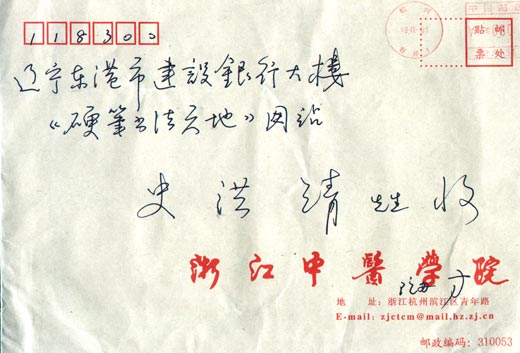 118300
貼邮
票处
辽宁东港市建設銀行大樓
《硬筆书法天地》网站
史洪靖 先生 收
浙江中醫學院
地 址：浙江杭州滨江区青年路
E-mail：zjctcm@mail.hz.zj.cn
邮政编码：310053